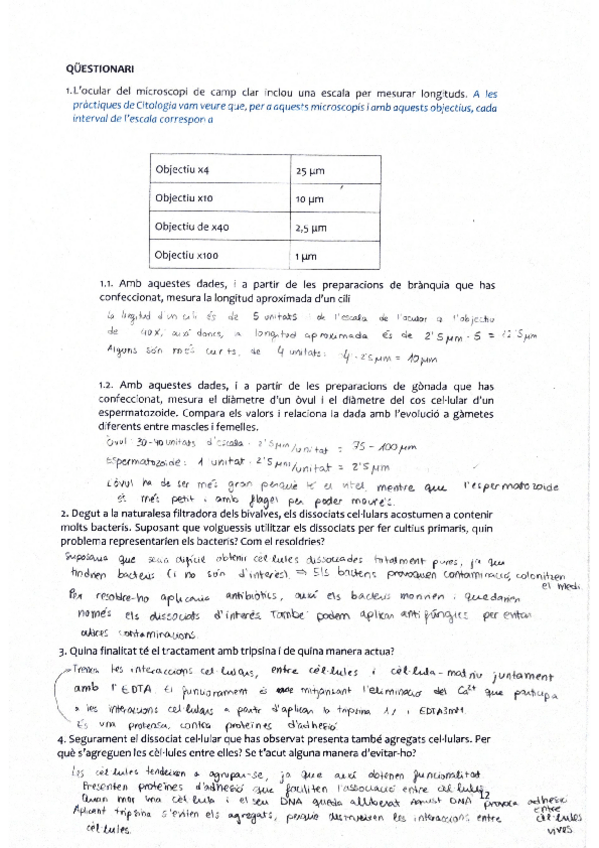 QÜESTIONARI
1.L'ocular del microscopi de camp clar inclou una escala per mesurar longituds. A les
pràctiques de Citologia vam veure que, per a aquests microscopis i amb aquests objectius, cada
interval de l'escala correspon a
Objectiu x4 25 µm
Objectiu x10 10 µm
Objectiu de x40 2,5 µm
Objectiu x100 1 µm
1.1. Amb aquestes dades, i a partir de les preparacions de brànquia que has
confeccionat, mesura la longitud aproximada d'un cili
La longitud d'un cili és de 5 unitats de l'escala de l'ocular a l'objectiu
de 40X, així doncs, la longitud aproximada és de 2'5 µm · 5 = 12'5µm
Alguns són més curts, de 4 unitats: 4 · 2'5µm = 10µm
1.2. Amb aquestes dades, i a partir de les preparacions de gònada que has
confeccionat, mesura el diàmetre d'un òvul i el diàmetre del cos cel·lular d'un
espermatozoide. Compara els valors i relaciona la dada amb l'evolució a gàmetes
diferents entre mascles i femelles.
Òvul: 30-40 unitats d'escala · 2'5µm/unitat = 75 - 100µm
Espermatozoide: 1 unitat · 2'5µm/unitat = 2'5µm
L'òvul ha de ser més gran perquè té el vitel, mentre que l'espermatozoide
és més petit i amb flagel per poder moure's.
2. Degut a la naturalesa filtradora dels bivalves, els dissociats cel·lulars acostumen a contenir
molts bacteris. Suposant que volguessis utilitzar els dissociats per fer cultius primaris, quin
problema representarien els bacteris? Com el resoldries?
Suposaria que seria difícil obtenir cèl·lules dissociades totalment pures, ja que
tindrien bacteris (i no són d'interès). ⇒ Els bacteris provoquen contaminació, colonitzen
el medi.
Per resoldre-ho aplicaria antibiòtics, així els bacteris moririen i quedarien
només els dissociats d'interès. També podem aplicar antifúngics per evitar
altres contaminacions.
3. Quina finalitat té el tractament amb tripsina i de quina manera actua?
Trenca les interaccions cel·lulars, entre cèl·lules i cèl·lula-matriu juntament
amb l'EDTA. El funcionament és mitjançant l'eliminació del Ca2+ que participa
a les interaccions cel·lulars a partir d'aplicar la tripsina i EDTA 3mM.
És una proteasa, contra proteïnes d'adhesió
4. Segurament el dissociat cel·lular que has observat presenta també agregats cel·lulars. Per
què s'agreguen les cèl·lules entre elles? Se t'acut alguna manera d'evitar-ho?
Les cèl·lules tendeixen a agrupar-se, ja que així obtenen funcionalitat
Presenten proteïnes d'adhesió que faciliten l'associació entre cèl·lules
Quan mor una cèl·lula i el seu DNA queda alliberat aquest DNA provoca adhesió
entre
cèl·lules
vives
Aplicant tripsina s'evien els agregats, perquè destrueixen les interaccions entre
cèl·lules.
12